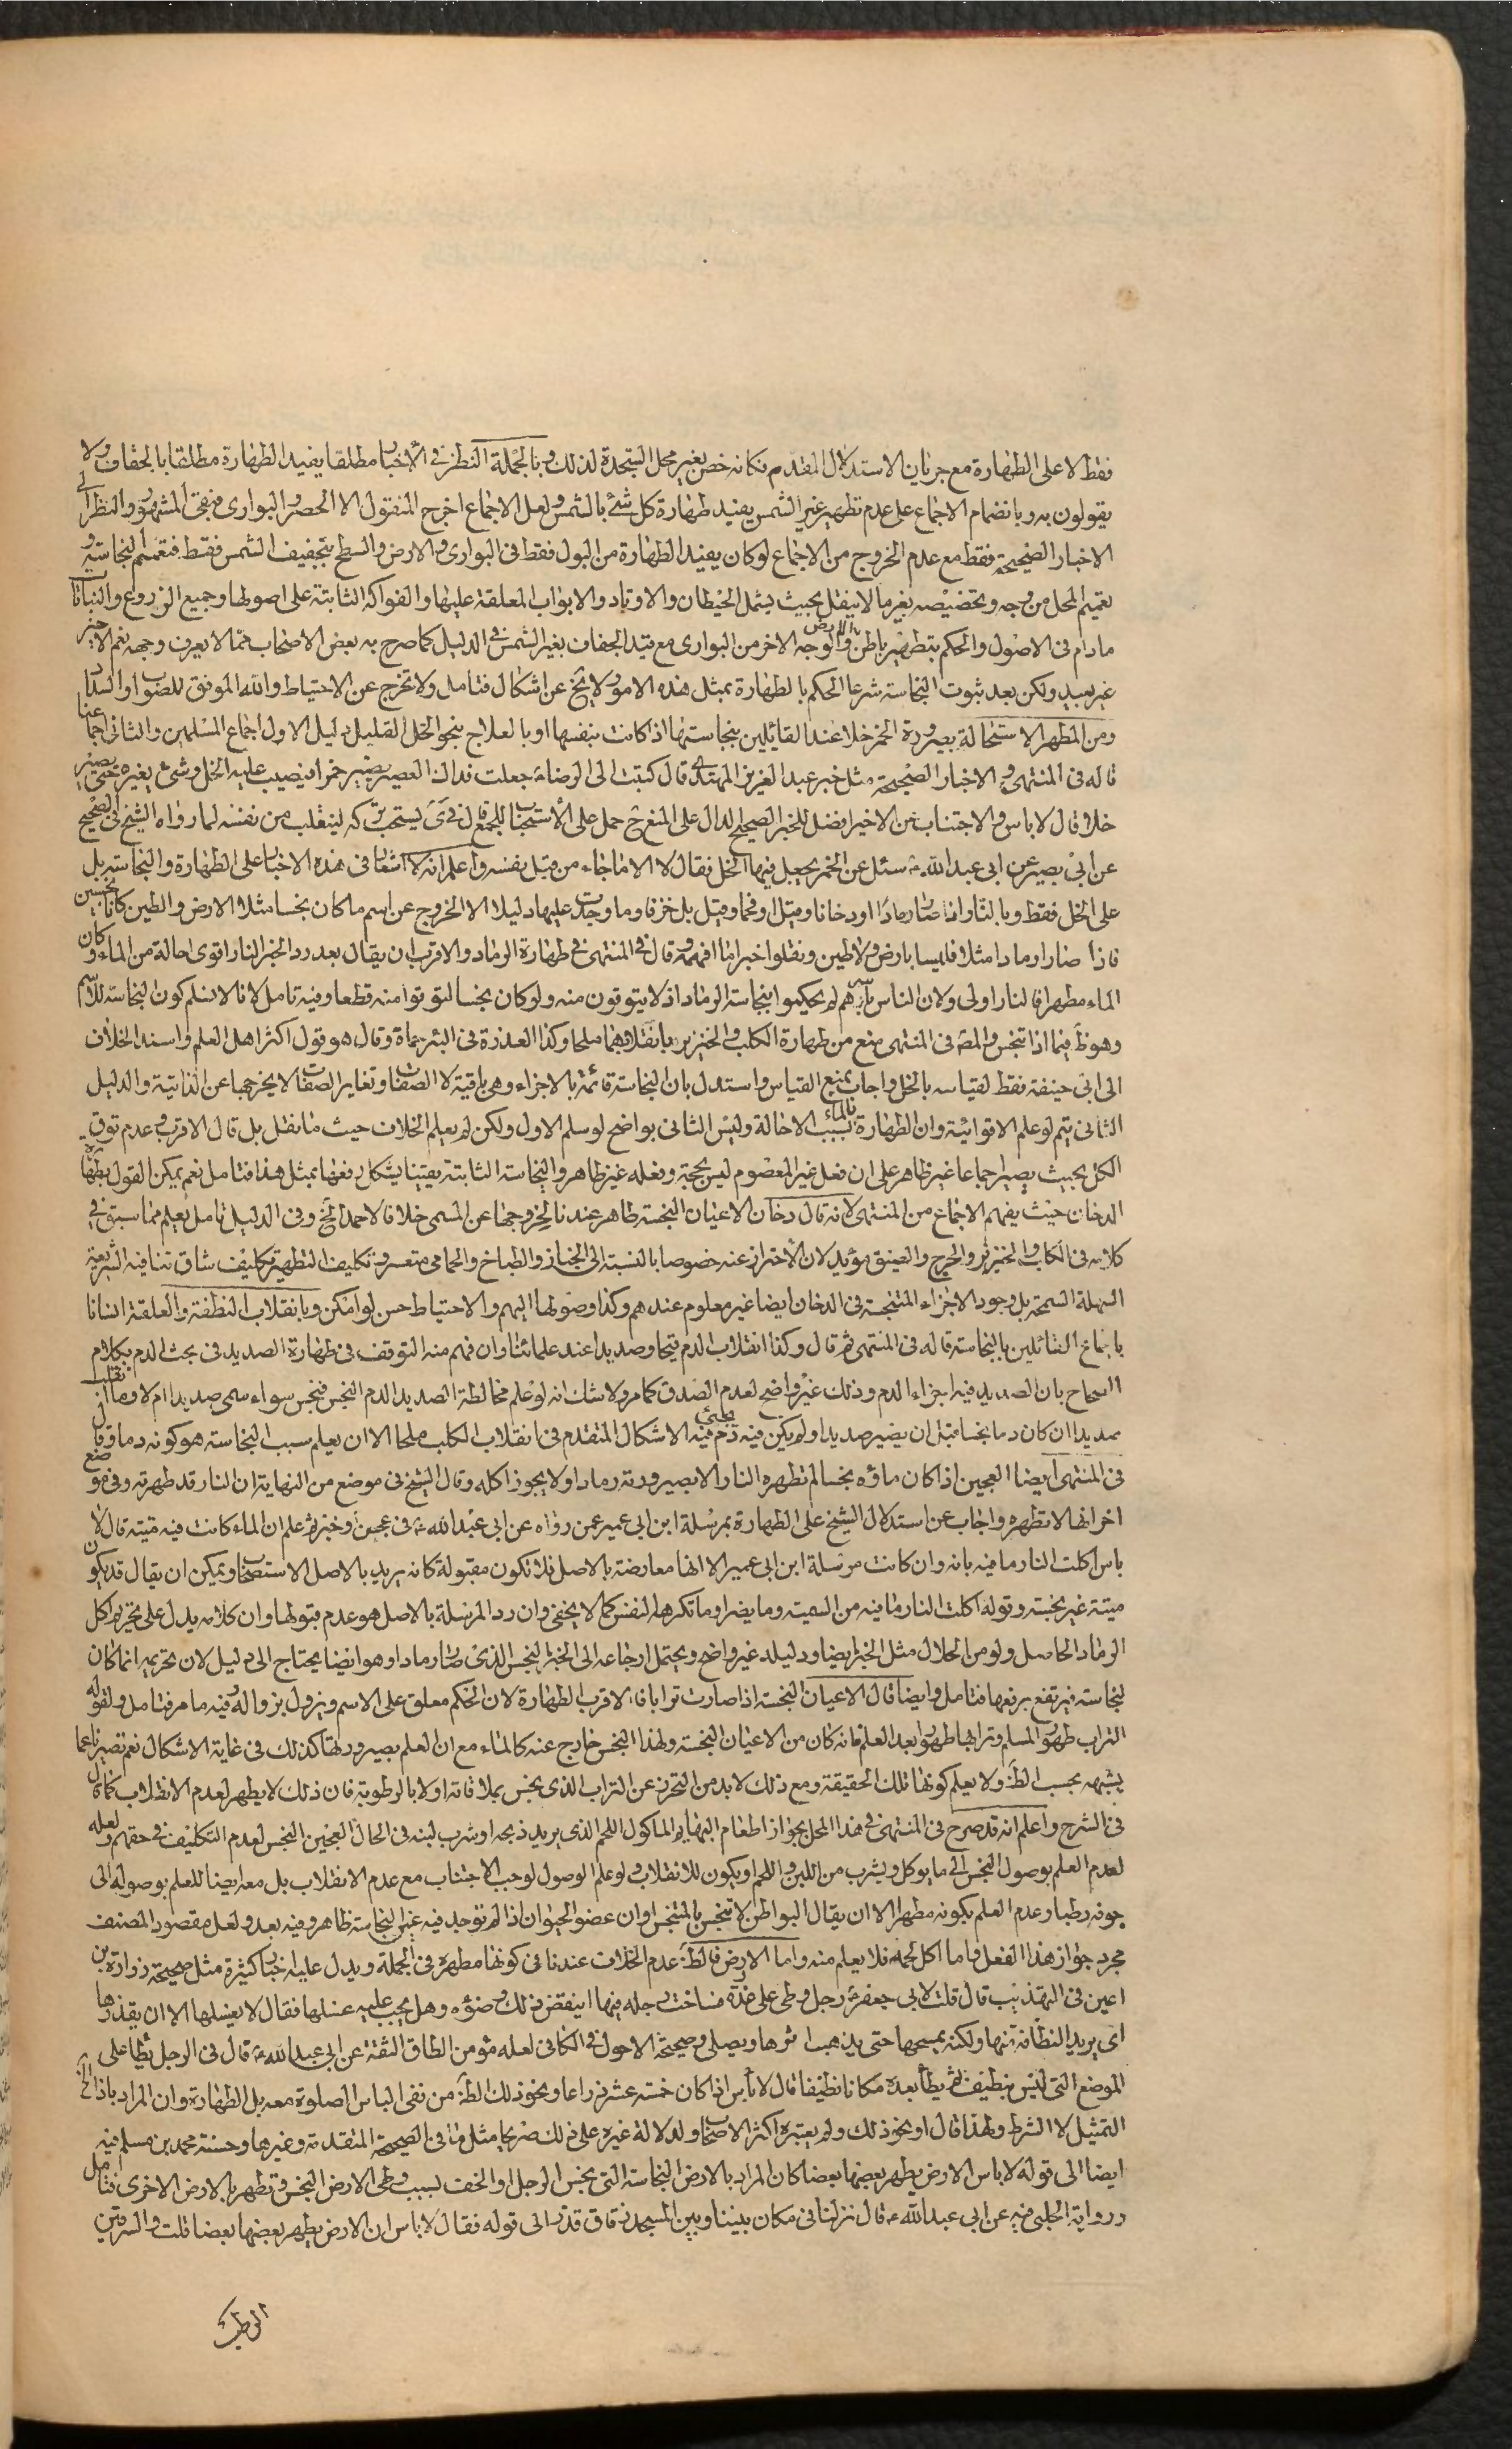 فقط لا على الطهارة مع جريان الاستدلال المقدم فكانه خص بغير محل السجدة لذلك وبالجملة النظر فى الأخبار مطلقا يفيد الطهارة مطلقا بالجفاف ولا
يقولون به وبانضمام الاجماع على عدم تطهير غير الشمس يفيد طهارة كل شئ بالشمس ولعل الاجماع اخرج المنقول الا الحصر والبوارى فبقى المشهور والنظر الى
الاخبار الصحيحة فقط مع عدم الخروج من الاجماع لو كان يفيد الطهارة من البول فقط فى البوارى والارض والسطح بتجفيف الشمس فقط فتعميم النجاسة و
تعميم المحل من وجه وتخصيصه بغير ما لا ينقل بحيث يشمل الحيطان والاوتاد والابواب المعلقة عليها والفواكه الثابتة على اصولها وجميع الزروع والنباتات
مادام فى الاصول والحكم بتطهير باطن الارض والوجه الاخر من البوارى مع قيد الجفاف بغير الشمس فى الدليل كما صرح به بعض الاصحاب مما لا يعرف وجهه نعم الاخير
غير بعيد ولكن بعد ثبوت النجاسة شرعا الحكم بالطهارة بمثل هذه الامور لا يخ عن اشكال فتامل ولا تخرج عن الاحتياط والله الموفق للصواب والسداد
ومن المطهر الاستحالة بصيرورة الخمر خلا عند القايلين بنجاستها اذا كانت بنفسها او بالعلاج بنحو الخل القليل دليل الاول اجماع المسلمين والثانى اجماعنا
قاله فى المنتهى والاخبار الصحيحة مثل خبر عبد العزيز المهتدى قال كتبت الى الرضا ع جعلت فداك العصير يصير خمرا فيصب عليه الخل وشئ يغيره حتى يصير
خلا قال لا باس والاجتناب عن الاخير افضل للخبر الصحيح الدال على المنع ح حمل على الاستحباب للجمع قال فى ى يستحب تركه لينقلب من نفسه لما رواه الشيخ فى الصحيح
عن ابى بصير عن ابى عبد الله ع سئل عن الخمر يجعل فيها الخل فقال لا الا ما جاء من قبل نفسه واعلم انه لا اشعار فى هذه الاخبار على الطهارة والنجاسة بل
على الخل فقط وبالنار اذا صار رمادا او دخانا وقيل او فحما وقيل بل خزفا وما وجدت عليها دليلا الا الخروج عن اسم ما كان نجسا مثلا الارض والطين كانا نجسين
فاذا صارا رمادا مثلا فليسا بارض ولا طين ونقلوا خبرا ما افهمه وقال فى المنتهى فى طهارة الرماد والاقرب ان يقال بعد رد الخبر النار اقوى احالة من الماء وكان
الماء مطهرا فالنار اولى ولان الناس باسرهم لم يحكموا بنجاسة الرماد اذ لا يتوقون منه ولو كان نجسا لتوقوا منه قطعا وفيه تامل لانا لا نسلم كون النجاسة للاسم
وهو ظ فيما اذا تنجس والمص فى المنتهى منع من طهارة الكلب والخنزير بانقلابهما ملحا وكذا العذرة فى البئر حماة وقال هو قول اكثر اهل العلم واسند الخلاف
الى ابى حنيفة فقط لقياسه بالخل واجاب بمنع القياس واستدل بان النجاسة قائمة بالاجزاء وهى باقية لا الصفات وتغاير الصفات لا يخرجها عن الذاتية والدليل
الثانى يتم لو علم الاقوائية وان الطهارة بالماء بسبب الاحالة وليس الثانى بواضح لو سلم الاول ولكن لم يعلم الخلاف حيث ما نقل بل قال الاقرب وعدم توقى
الكل بحيث يصير اجماعا غير ظاهر على ان فعل غير المعصوم ليس بحجة وفعله غير ظاهر والنجاسة الثابتة يقينا يشكل رفعها بمثل هذا فتامل نعم يمكن القول بطهارة
الدخان حيث يفهم الاجماع من المنتهى لانه قال دخان الاعيان النجسة طاهر عندنا لخروجها عن المسمى خلافا لاحمد الخ وفى الدليل تامل يعلم مما سبق فى
كلامه فى الكلب والخنزير والحرج والضيق مؤيد لان الاحتراز عنه خصوصا بالنسبة الى الخباز والطباخ والحمامى متعسر وتكليف التطهير تكليف شاق تنافيه الشريعة
السهلة السمحة بل وجود الاجزاء المتنجسة فى الدخان ايضا غير معلوم عندهم وكذا وصولها اليهم والاحتياط حسن لو امكن وبانقلاب النطفة والعلقة انسانا
باجماع القائلين بالنجاسة قاله فى المنتهى ثم قال وكذا انقلاب الدم قيحا وصديدا عند علمائنا وان فهم منه التوقف فى طهارة الصديد فى بحث الدم بكلام
الصحاح بان الصديد فيه اجزاء الدم وذلك غير واضح لعدم الصدق كما مر ولا شك انه لو علم مخالطة الصديد الدم النجس فنجس سواء سمى صديدا ام لا وما انقلب
صديدا ان كان دما نجسا قبل ان يصير صديدا ولم يكن فيه دم فيه يجئ الاشكال المتقدم فى انقلاب الكلب ملحا الا ان يعلم سبب النجاسة هو كونه دما وقال
فى المنتهى ايضا العجين اذا كان ماؤه نجسا لم تطهره النار الا بصيرورته رمادا ولا يجوز اكله وقال الشيخ فى موضع من النهاية ان النار قد طهرته وفى موضع
اخر انها لا تطهره واجاب عن استدلال الشيخ على الطهارة بمرسلة ابن ابى عمير عمن رواه عن ابى عبد الله ع فى عجين وخبز ثم علم ان الماء كانت فيه ميتة قال لا
باس اكلت النار ما فيه بانه وان كانت مرسلة ابن ابى عمير الا انها معارضة بالاصل فلا تكون مقبولة كانه يريد بالاصل الاستصحاب ويمكن ان يقال قد يكون
ميتة غير نجسة وقوله اكلت النار ما فيه من السمية وما يضر او ما تكرهه النفس كما لا يخفى وان رد المرسلة بالاصل هو عدم قبولها وان كلامه يدل على تحريم اكل
الرماد الحاصل ولو من الحلال مثل الخبز ايضا ودليله غير واضح ويحتمل ارجاعه الى الخبز النجس الذى صار رمادا وهو ايضا يحتاج الى دليل لان تحريمه انما كان
لنجاسته فيرتفع برفعها فتامل وايضا قال الاعيان النجسة اذا صارت ترابا فالاقرب الطهارة لان الحكم معلق على الاسم ويزول بزواله وفيه ما مر فتامل ولقوله
التراب طهور المسلم وترابها طهورا بعد العلم فانه كان من الاعيان النجسة ولهذا النجس خارج عنه كالماء مع ان العلم بصيرورتها كذلك فى غاية الاشكال نعم تصير ناعما
يشبهه بحسب الظ ولا يعلم كونها تلك الحقيقة ومع ذلك لابد من التحرز عن التراب الذى نجس بملاقاته اولا بالرطوبة فان ذلك لا يطهر لعدم الانقلاب كما قال
فى الشرح واعلم انه قد صرح فى المنتهى فى هذا المحل بجواز اطعام البهايم الماكول اللحم الذى يريد ذبحه او شرب لبنه فى الحال العجين النجس لعدم التكليف فى حقهم ولعله
لعدم العلم بوصول النجس الى ما يوكل ويشرب من اللبن واللحم او يكون للانقلاب ولو علم الوصول لوجب الاجتناب مع عدم الانقلاب بل معه ايضا للعلم بوصوله الى
جوفه رطبا وعدم العلم بكونه مطهرا الا ان يقال البواطن لا تنجس بالمتنجس او ان عضو الحيوان اذا لم توجد فيه عين النجاسة طاهر وفيه بعد ولعل مقصود المصنف
مجرد جواز هذا الفعل فاما اكل لحمه فلا يعلم منه واما الارض فالظ عدم الخلاف عندنا فى كونها مطهرة فى الجملة ويدل عليه اخبار كثيرة مثل صحيحة زرارة بن
اعين فى التهذيب قال قلت لابى جعفر ع رجل وطى على عذرة فساخت رجله فيها اينقض ذلك وضؤه وهل يجب عليه غسلها فقال لا يغسلها الا ان يقذرها
اى يريد النظافة منها ولكنه يمسحها حتى يذهب اثرها ويصلى وصحيحة الاحول فى الكافى لعله مؤمن الطاق الثقة عن ابى عبد الله ع قال فى الرجل يطأ على
الموضع التى ليس بنظيف ثم يطأ بعده مكانا نظيفا قال لا بأس اذا كان خمسة عشر ذراعا او نحو ذلك الظ من نفى الباس الصلوة معه بل الطهارة وان المراد باذا الخ
التمثيل لا الشرط ولهذا قال او نحو ذلك ولم يعتبره اكثر الاصحاب ولدلالة غيره على ذلك صريحا مثل ما فى الصحيحة المتقدمة وغيرها وحسنة محمد بن مسلم فيه
ايضا الى قوله لا باس الارض يطهر بعضها بعضا كان المراد بالارض النجاسة التى نجس الرجل او الخف بسبب وطى الارض النجس وتطهر بالارض الاخرى فتامل
ورواية الحلبى فيه عن ابى عبد الله ع قال نزلنا فى مكان بيننا وبين المسجد زقاق قذر الى قوله فقال لا باس ان الارض يطهر بعضها بعضا قلت والسرقين
الرطب